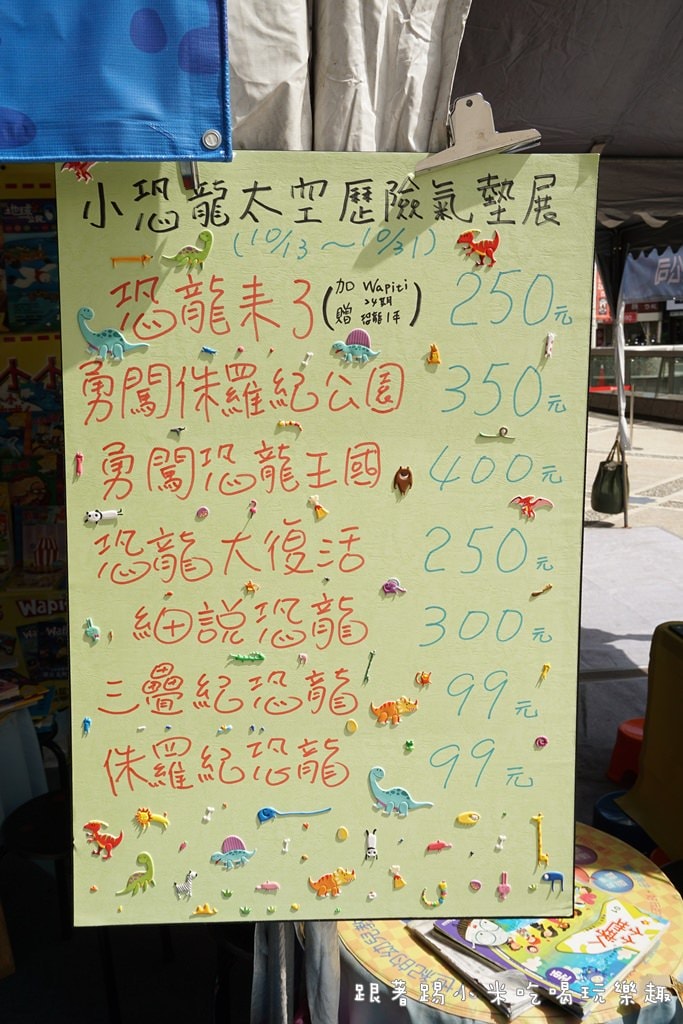 小恐龍太空歷險氣墊展
(10/13～10/31)
恐龍来了(加贈 Wapiti 24期 恐龍1年) 250元
勇闖侏羅紀公園 350元
勇闖恐龍王國 400元
恐龍大復活 250元
細說恐龍 300元
三疊紀恐龍 99元
侏羅紀恐龍 99元
Wapiti
跟著踢小米吃喝玩樂趣